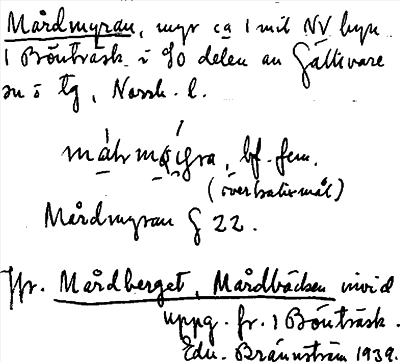 Mårdmyran, myr ca 1 mil NV byn
1 Bönträsk i SO delen av Gällivare
sn i tg, Norrb. l.
bf. fem.
(överkalixmål)
Mårdmyran G 22.
Jfr. Mårdberget, Mårdbäcken invid
uppg. fr. 1 Bönträsk.
Edv. Brännström 1939.